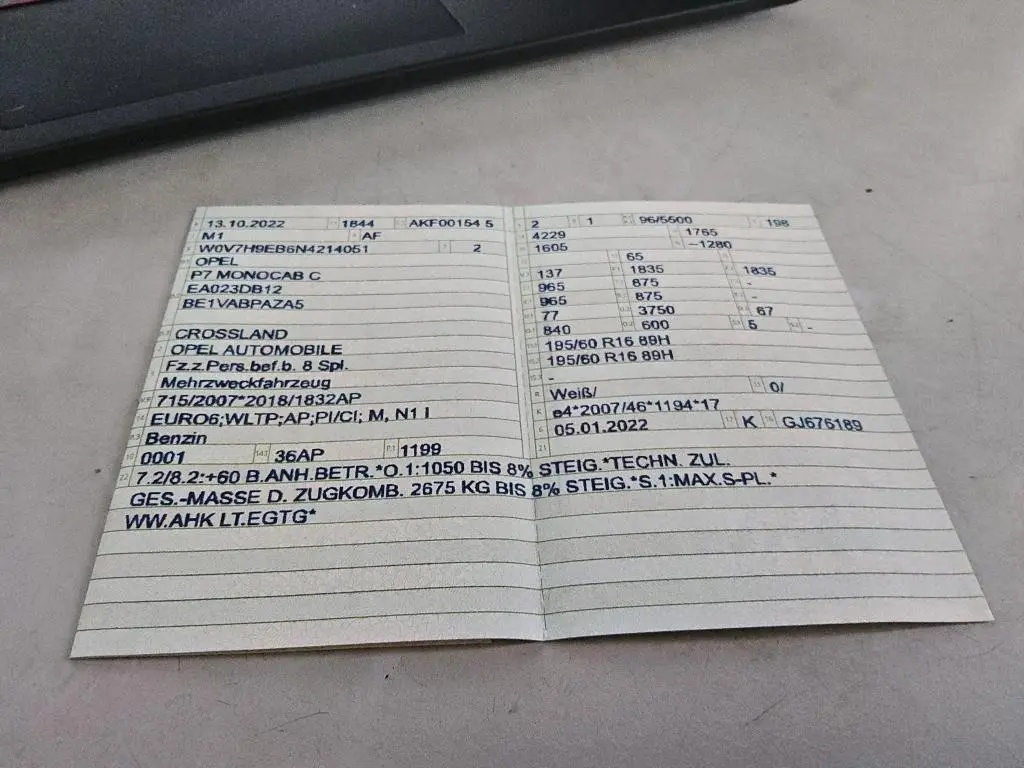 13.10.2022 1844 AKF00154 5
M1 AF
W0V7H9EB6N4214051 2
OPEL
P7 MONOCAB C
EA023DB12
BE1VABPAZA5
CROSSLAND
OPEL AUTOMOBILE
Fz.z.Pers.bef.b. 8 Spl.
Mehrzweckfahrzeug
715/2007*2018/1832AP
EURO6;WLTP;AP;PI/CI; M, N1 I
Benzin
0001 36AP 1199
2 1 96/5500 198
4229 1765
1605 –1280
65
137 1835 1835
965 875 -
965 875 -
77 3750 67
840 600 5 -
195/60 R16 89H
195/60 R16 89H
-
Weiß/ 0/
e4*2007/46*1194*17
05.01.2022 K GJ676189
7.2/8.2:+60 B.ANH.BETR.*O.1:1050 BIS 8% STEIG.*TECHN. ZUL.
GES.-MASSE D. ZUGKOMB. 2675 KG BIS 8% STEIG.*S.1:MAX.S-PL.*
WW.AHK LT.EGTG*